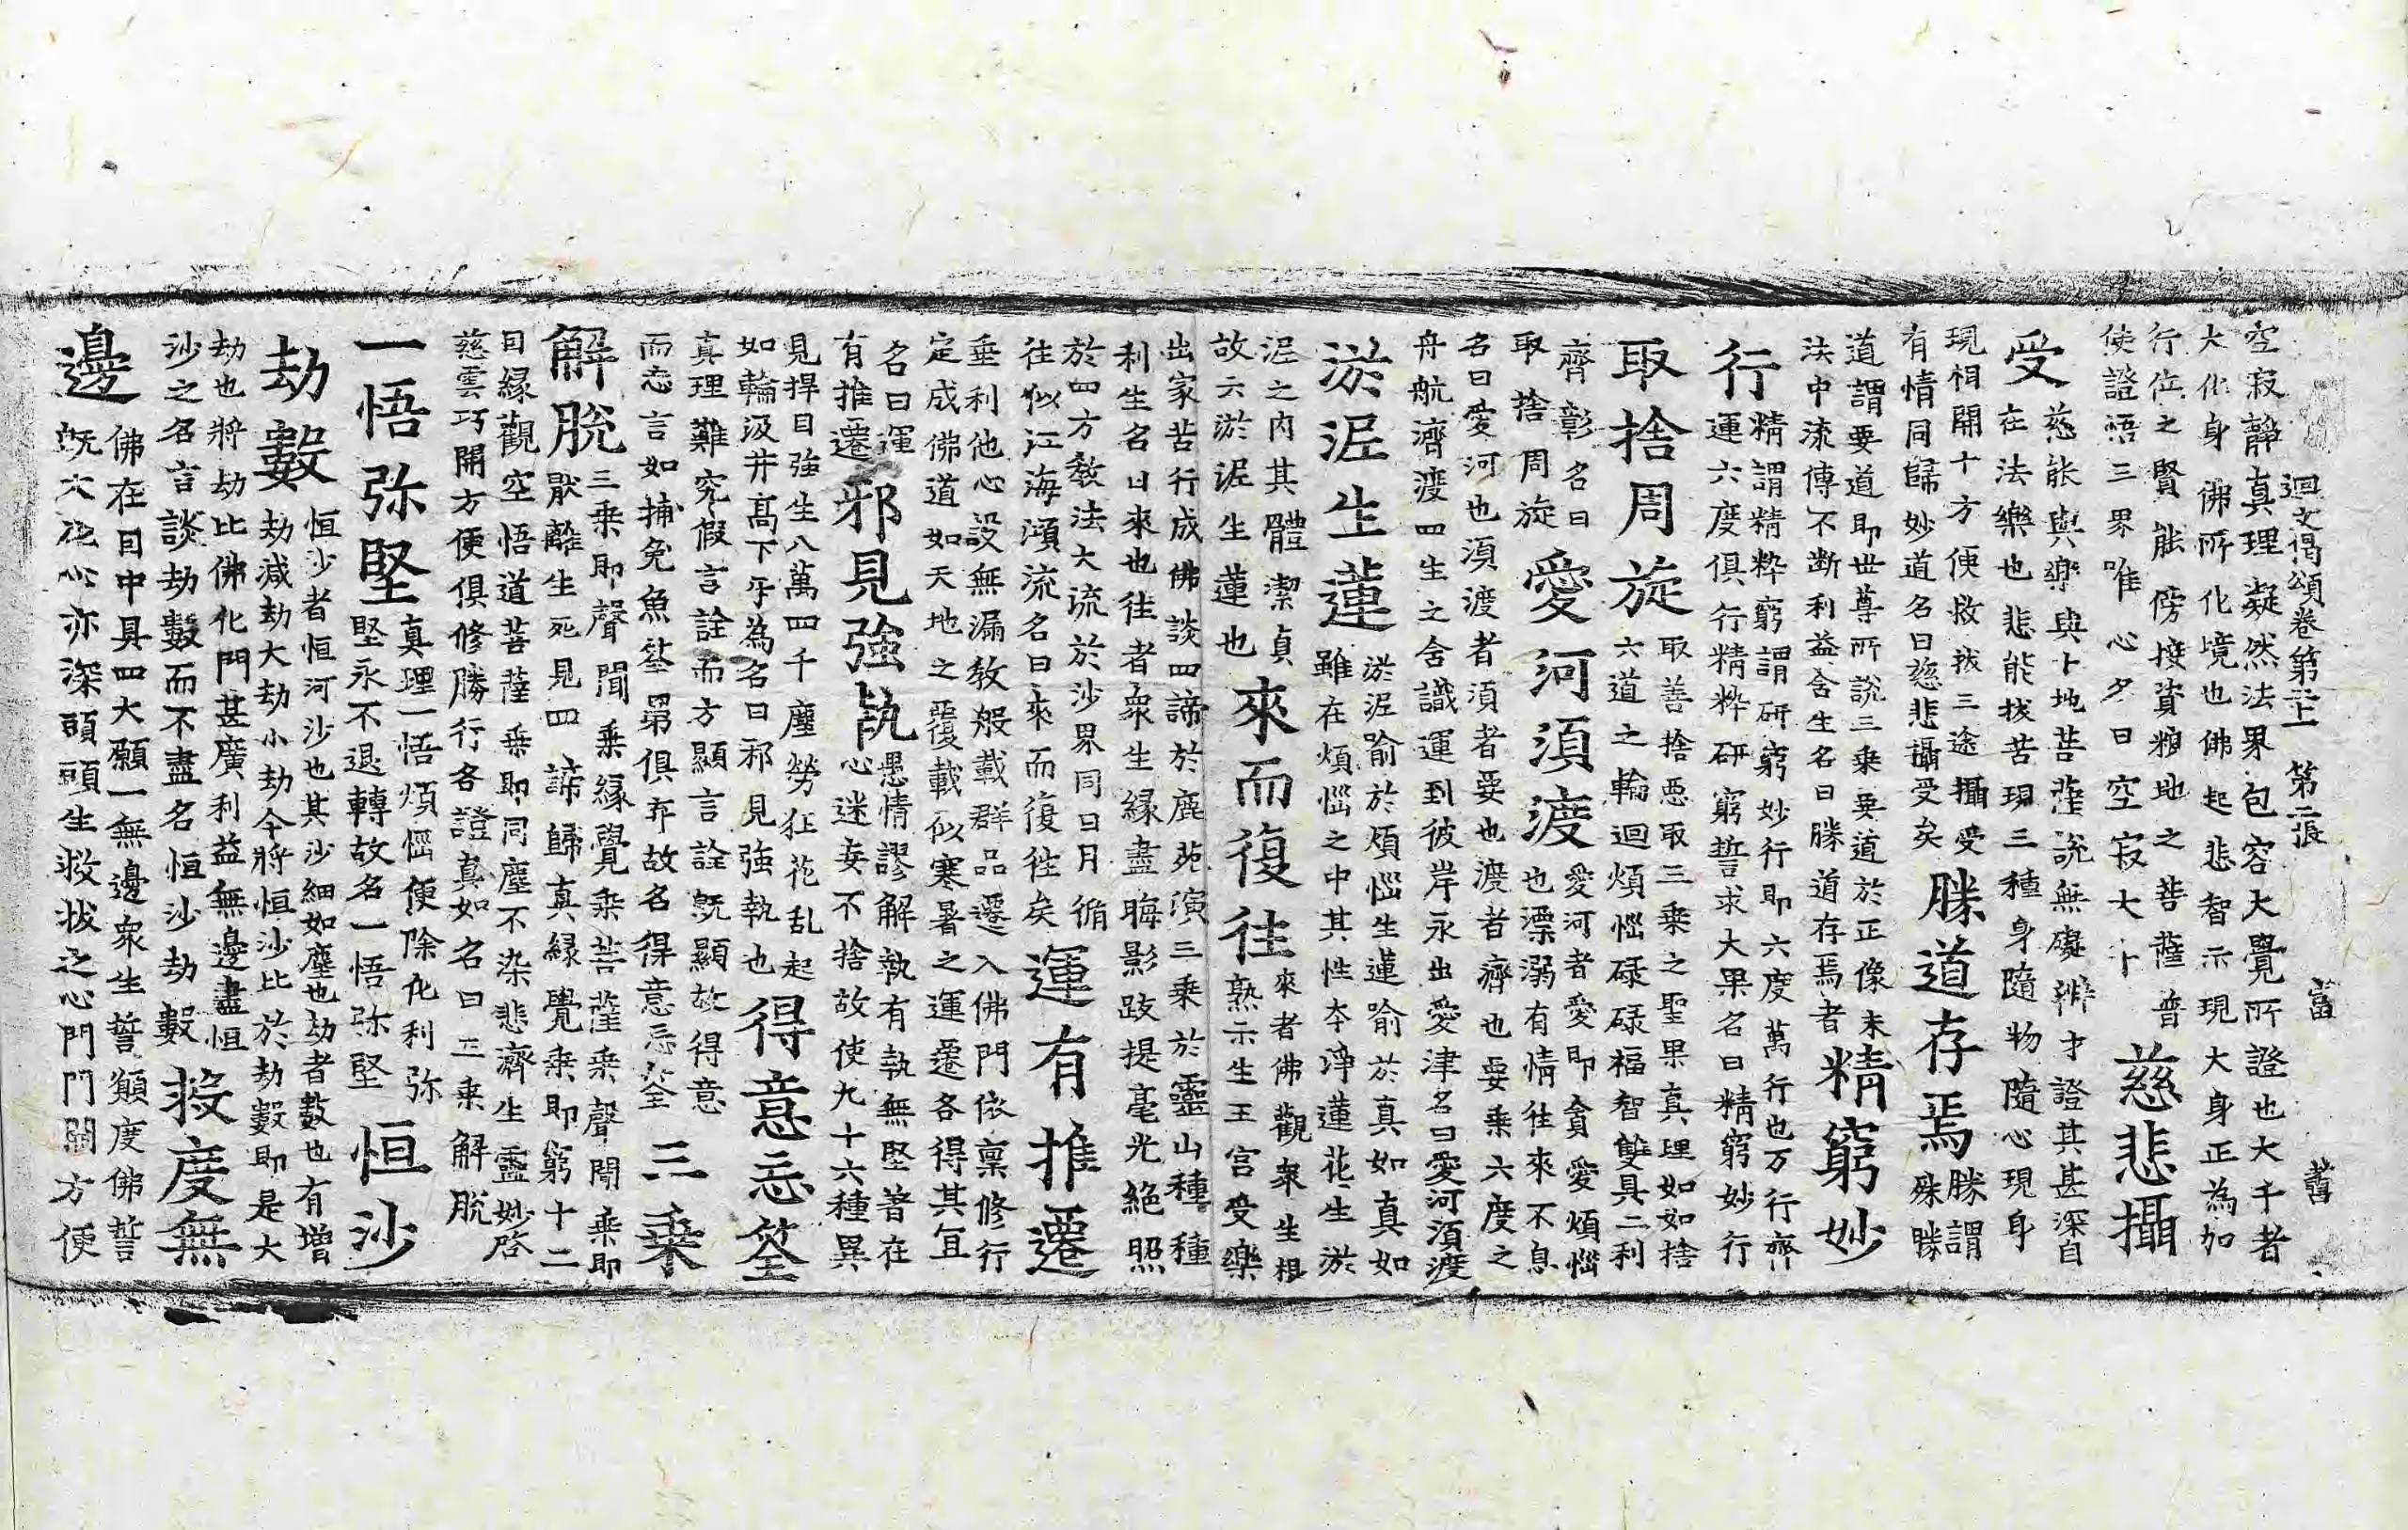 迴文偈頌卷第二十 第二張 富 昔
空寂靜真理凝然法界包容大覺所證也大千者
大化身佛所化境也佛起悲智示現大身正為加
行位之賢能傍接資糧地之菩薩普
使證悟三界唯心夕曰空寂大千
慈悲攝
受
慈能與樂與十地菩薩說無礙辯才證其甚深自
在法樂也悲能拔苦現三種身隨物隨心現身
現相開十方便救拔三途攝受
有情同歸妙道名曰慈悲攝受矣
勝道存焉
勝謂
殊勝
道謂要道即世尊所說三乘要道於正像末
法中流傳不断利益含生名曰勝道存焉者
精窮妙
行
精謂精粹窮謂研窮妙行即六度萬行也万行齊
運六度俱行精粹研窮誓求大果名曰精窮妙行
取捨周旋
取善捨惡取三乘之聖果真理如如捨
六道之輪迴煩惱碌碌福智雙具二利
齊彰名曰
取捨周旋
愛河須渡
愛河者愛即貪愛煩惱
也漂溺有情往來不息
名曰愛河也須渡者須者要也渡者齊也要乘六度之
舟航濟渡四生之含識運到彼岸永出愛津名曰愛河須渡
淤泥生蓮
淤泥喻於煩惱生蓮喻於真如真如
雖在煩惱之中其性本淨蓮花生淤
泥之内其體潔貞
故云淤泥生蓮也
來而復往
來者佛觀衆生根
熟示生王宫受樂
出家苦行成佛談四諦於鹿苑演三乘於靈山種種
利生名曰來也往者衆生緣盡晦影跂提毫光絶照
於四方教法大流於沙界同日月循
往似江海湏流名曰來而復往矣
運有推遷
垂利他心設無漏教般載群品遷入佛門依稟修行
定成佛道如天地之覆載似寒暑之運遷各得其宜
名曰運
有推遷
邪見強執
愚情謬解執有執無堅著在
心迷妄不捨故使九十六種異
見捍目強生八萬四千塵勞狂花乱起
如輪汲井髙下乎為名曰邪見強執也
得意忘筌
真理難究假言詮而方顯言詮旣顯故得意
而忘言如捕兔魚筌羂俱弃故名得意忘筌
三乘
解脫
三乘即聲聞乘緣覺乘菩薩乘聲聞乘即
厭離生死見四諦歸真緣覺乘即窮十二
因緣觀空悟道菩薩乘即同塵不染悲濟生靈妙啓
慈雲巧開方便俱修勝行各證真如名曰三乘解脫
一悟弥堅
真理一悟煩惱便除化利弥
堅永不退轉故名一悟弥堅
恒沙
劫數
恒沙者恒河沙也其沙細如塵也劫者數也有增
劫減劫大劫小劫今將恒沙比於劫數即是大
劫也將劫比佛化門甚廣利益無邊盡恒
沙之名言談劫數而不盡名恒沙劫數
救度無
邊
佛在因中具四大願一無邊衆生誓願度佛誓
旣大化心亦深頭頭生救拔之心門門開方便